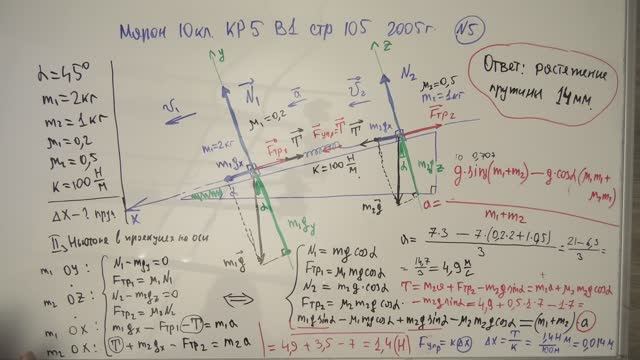 Марон 10кл. КР5 В1 стр 105 2005г. N5
Ответ: растяжение
пружины 14мм.
α=45°
m₁=2кг
m₂=1кг
μ₁=0,2
μ₂=0,5
K=100 Н/м
Δx-? пруж
y
z
N₁
N₂
a
v₁
v₂
μ₁=0,2
μ₂=0,5
m₂=1кг
m₁=2кг
m₁gx
m₂gx
Fтр1
T
Fупр=T
Fтр2
K=100 Н/м
X
α
m₁g
m₁gy
m₂g
m₂gz
10 0,707
a = g·sinα(m₁+m₂) - g·cosα(μ₁m₁+μ₂m₂) / m₁+m₂
II з. Ньютона в проекциях на оси
m₁ OY: N₁-m₁gy=0
Fтр1=μ₁N₁
m₂ OZ: N₂-m₂gz=0
Fтр2=μ₂N₂
m₁ OX: m₁gx-Fтр1-T=m₁a
m₂ OX: T+m₂gx-Fтр2=m₂a
⇔
N₁=m₁g cosα
Fтр1=μ₁m₁g cosα
N₂=m₂g·cosα
Fтр2=μ₂m₂g cosα
m₁g sinα-μ₁m₁g cosα+m₂g sinα-μ₂m₂g cosα=(m₁+m₂)a
a= 7·3 - 7·(0,2·2+1·0,5) / 3 = 21-6,3 / 3 =
= 14,7/3 = 4,9 м/с²
T=m₂a+Fтр2-m₂g sinα=m₂a+μ₂m₂g cosα
-m₂g sinα=4,9+0,5·1·7-1·7=
=4,9+3,5-7=1,4(Н)
Fупр=KΔx
Δx=T/K=1,4Н/100Н м=0,014м